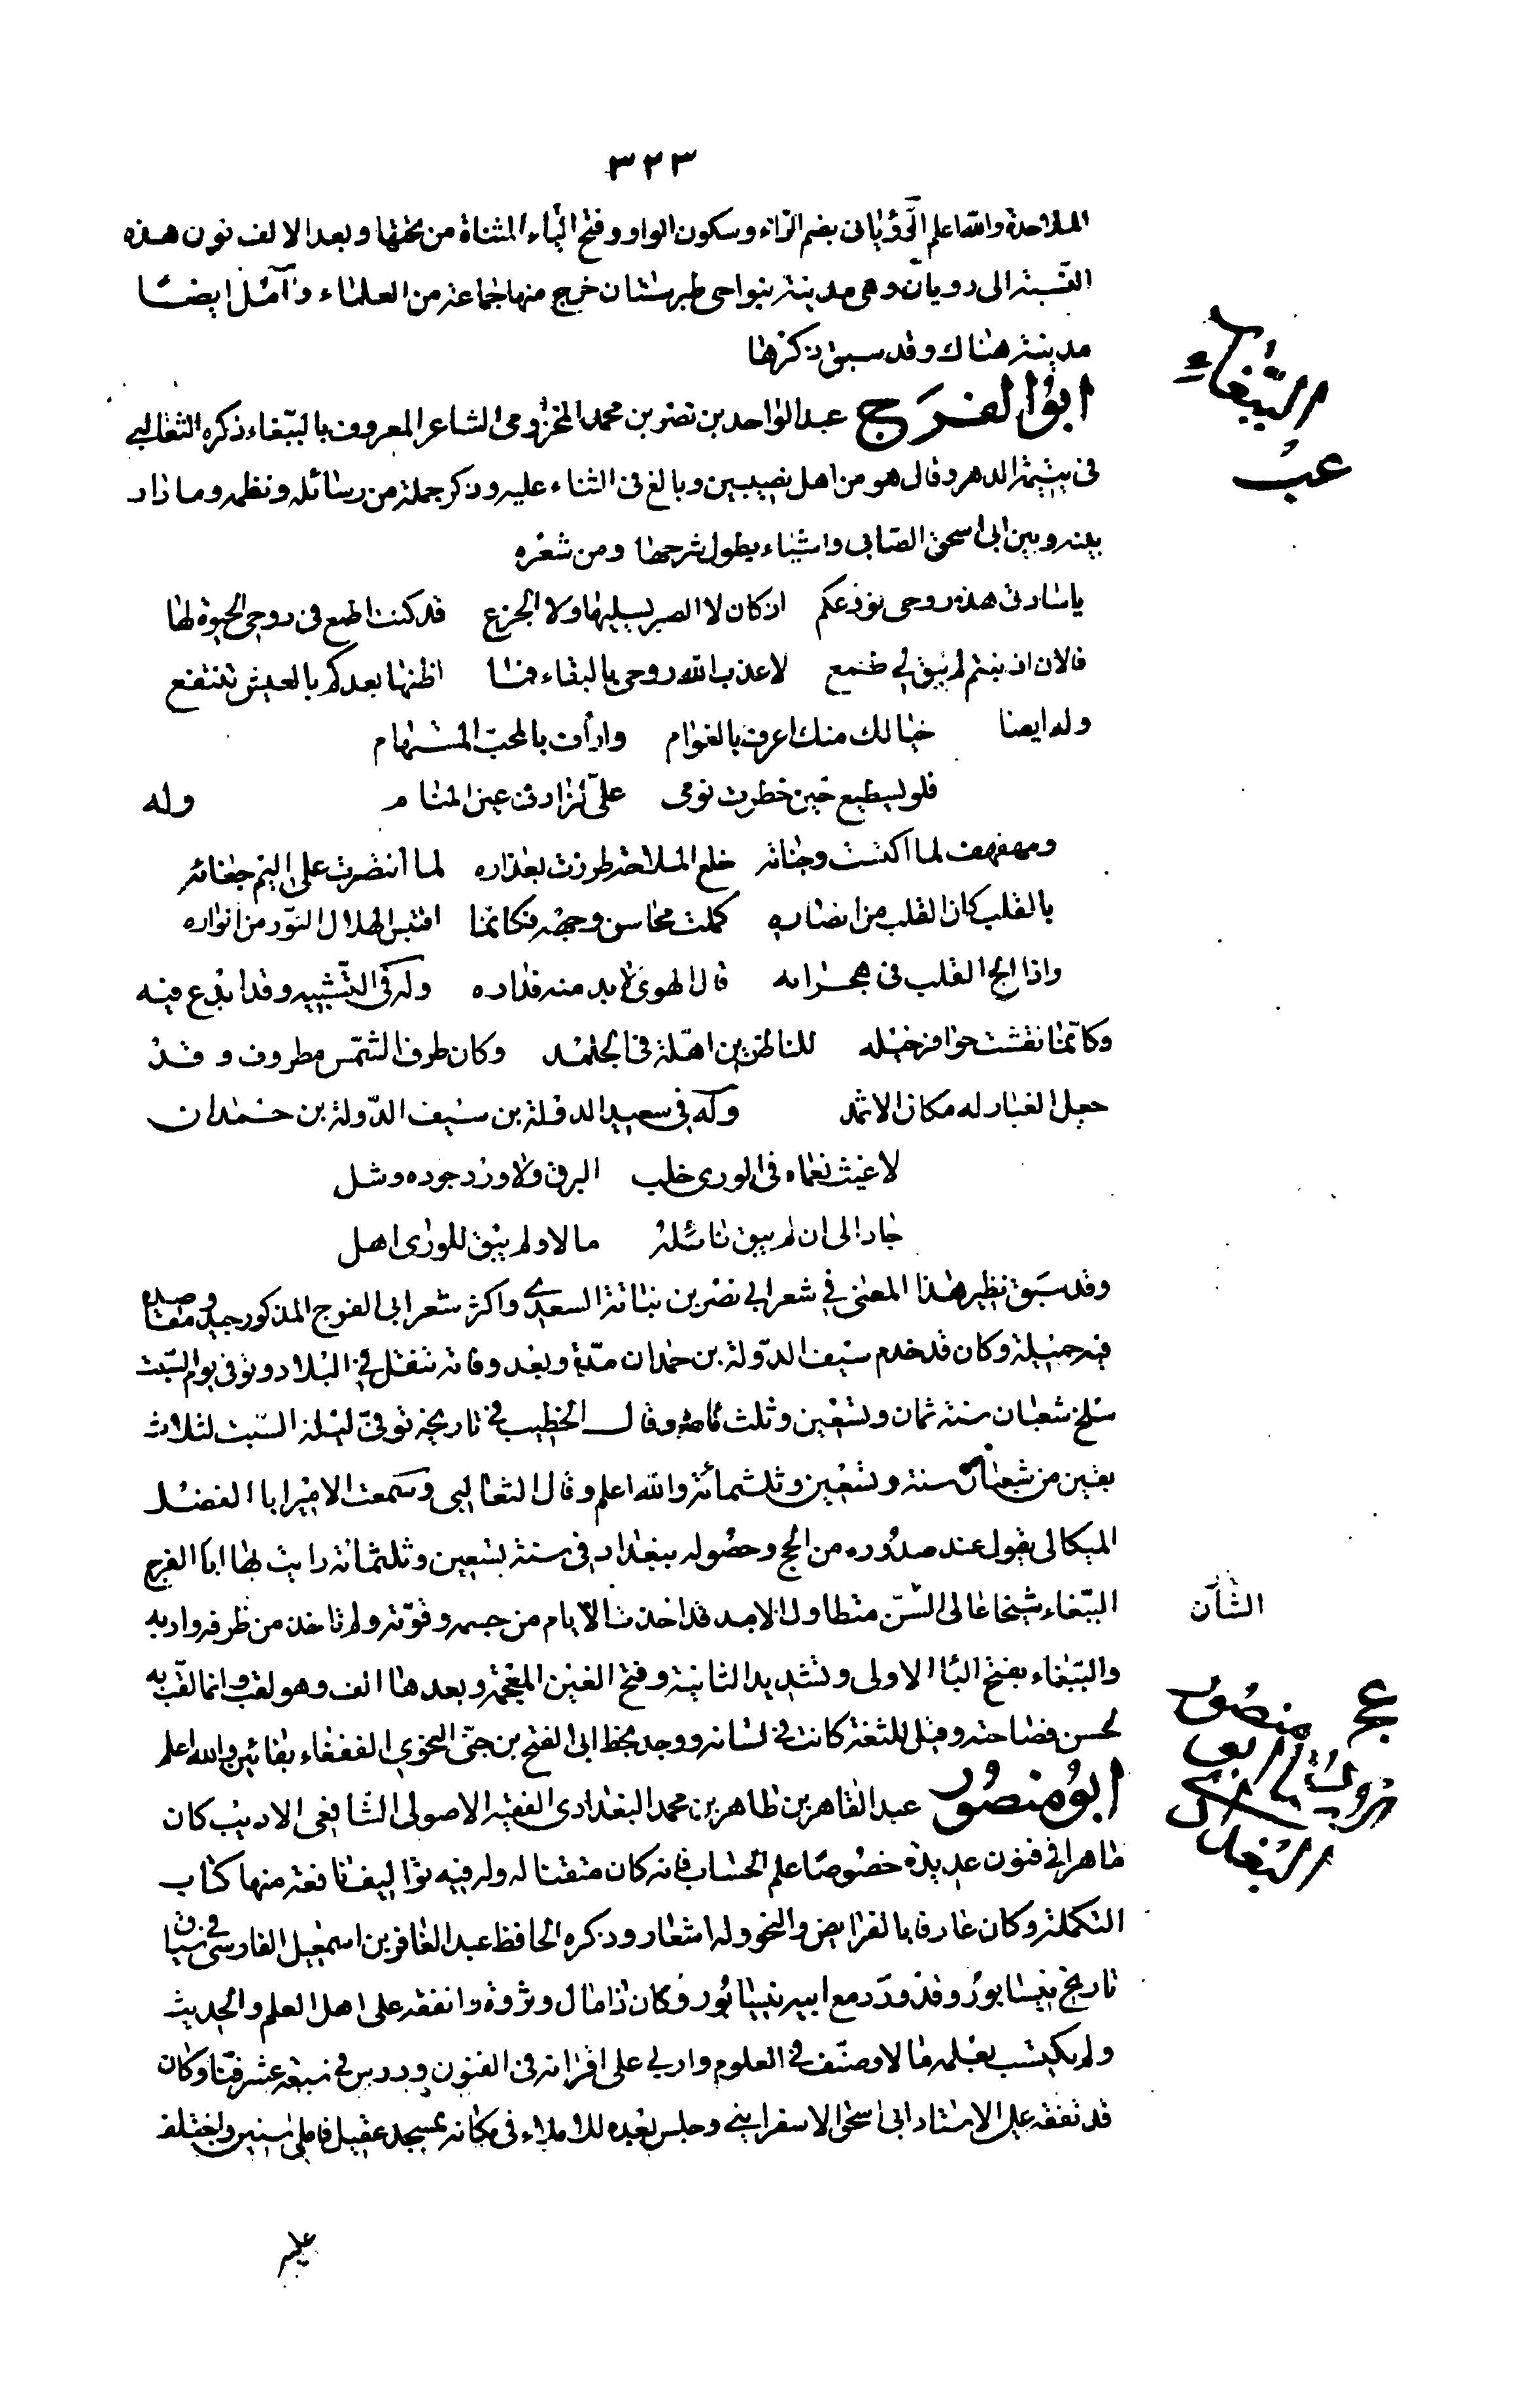 ٣٢٣
الملاحدة والله اعلم الرُّويانى بضم الراء وسكون الواو وفتح الياء المثناة من تحتها وبعد الالف نون هذه
النسبة الى رويان وهى مدينة بنواحى طبرستان خرج منها جماعة من العلماء وآمل ايضا
مدينة هناك وقد سبق ذكرها
الببغاء
ابو الفرج عبد الواحد بن نصر بن محمد المخزومى الشاعر المعروف بالببغاء ذكره الثعالبي
فى يتيمة الدهر وقال هو من اهل نصيبين وبالغ فى الثناء عليه وذكر جملة من رسائله ونظمه وما دار
بينه وبين ابى اسحق الصابى واشياء يطول شرحها ومن شعره
يا سادتى هذه روحى تودعكم اذ كان لا الصبر يسليها ولا الجزع قد كنت اطمع فى روح الحيوة لها
فالان اذ بنتم لم يبق لي طمع لا عذب الله روحى بالبقاء فما اظنها بعدكم بالعيش تنتفع
وله ايضا خيالك منك اعرف بالغرام وارأف بالمحب المستهام
فلو يسطيع حين خطرت نومى على لزار فى غير المنام وله
ومهفهف لما اكتست وجناته خلع الملاحة طرزت بعذاره لما انتصرت على اليم جفائه
بالقلب كان القلب من انصاره كملت محاسن وجهه فكانما اقتبس الهلال النور من انواره
واذا الح القلب فى هجرانه قال الهوى لا بد منه فداره وله فى التشبيه وقد ابدع فيه
وكانما نقشت حوافر خيله للناظرين اهلة فى الجلمد وكان طرف الشمس مطروف وقد
جعل الغبار له مكان الاثمد وله في سعيد الدولة بن سيف الدولة بن حمدان
لا غيث نعماه فى الورى خلب البرق ولا ورد جوده وشل
جاد الى ان لم يبق نائله مالا ولم يبق للورى اهل
وقد سبق نظير هذا المعنى في شعر ابي نصر بن نباتة السعدي واكثر شعر ابى الفرج المذكور جيد ومقاصده
فيه جميلة وكان قد خدم سيف الدولة بن حمدان مدة وبعد وفاته تنقل في البلاد وتوفى يوم السبت
سلخ شعبان سنة ثمان وتسعين وثلث مائة وقال الخطيب في تاريخه توفى ليلة السبت لثلاث
بقين من شعبان سنة وتسعين وثلثمائة والله اعلم وقال الثعالبى وسمعت الامير ابا الفضل
الميكالى يقول عند صدوره من الحج وحصوله ببغداد فى سنة تسعين وثلثمائة رايت بها ابا الفرج
الببغاء شيخا عالى السن متطاول الامد قد اخذت الايام من جسمه وقوته ولم تاخذ من ظرفه وادبه
والببغاء بفتح الباء الاولى وتشديد الثانية وفتح الغين المعجمة وبعدها الف وهو لقب وانما لقب به
لحسن فصاحته وقيل للثغة كانت في لسانه ووجد بخط ابى الفتح بن جنى النحوي الففغاء بفائين والله اعلم
منصور
ابو منصور عبد القاهر بن طاهر بن محمد البغدادى الفقيه الاصولى الشافعى الاديب كان
ماهرا فى فنون عديدة خصوصا علم الحساب فانه كان متقنا له وله فيه تواليف نافعة منها كتاب
التكملة وكان عارفا بالفرايض والنحو وله اشعار وذكره الحافظ عبد الغافر بن اسمعيل الفارسى في سياق
تاريخ نيسابور وقد ورد مع ابيه نيسابور وكان ذا مال وثروة وانفقه على اهل العلم والحديث
ولم يكتسب بعلمه مالا وصنف في العلوم واربي على اقرانه فى الفنون ودرس في سبعة عشر فنا وكان
قد تفقه على الاستاد ابى اسحق الاسفرايني وجلس بعده للاملاء فى مكانه بمسجد عقيل فاملى سنين واختلف